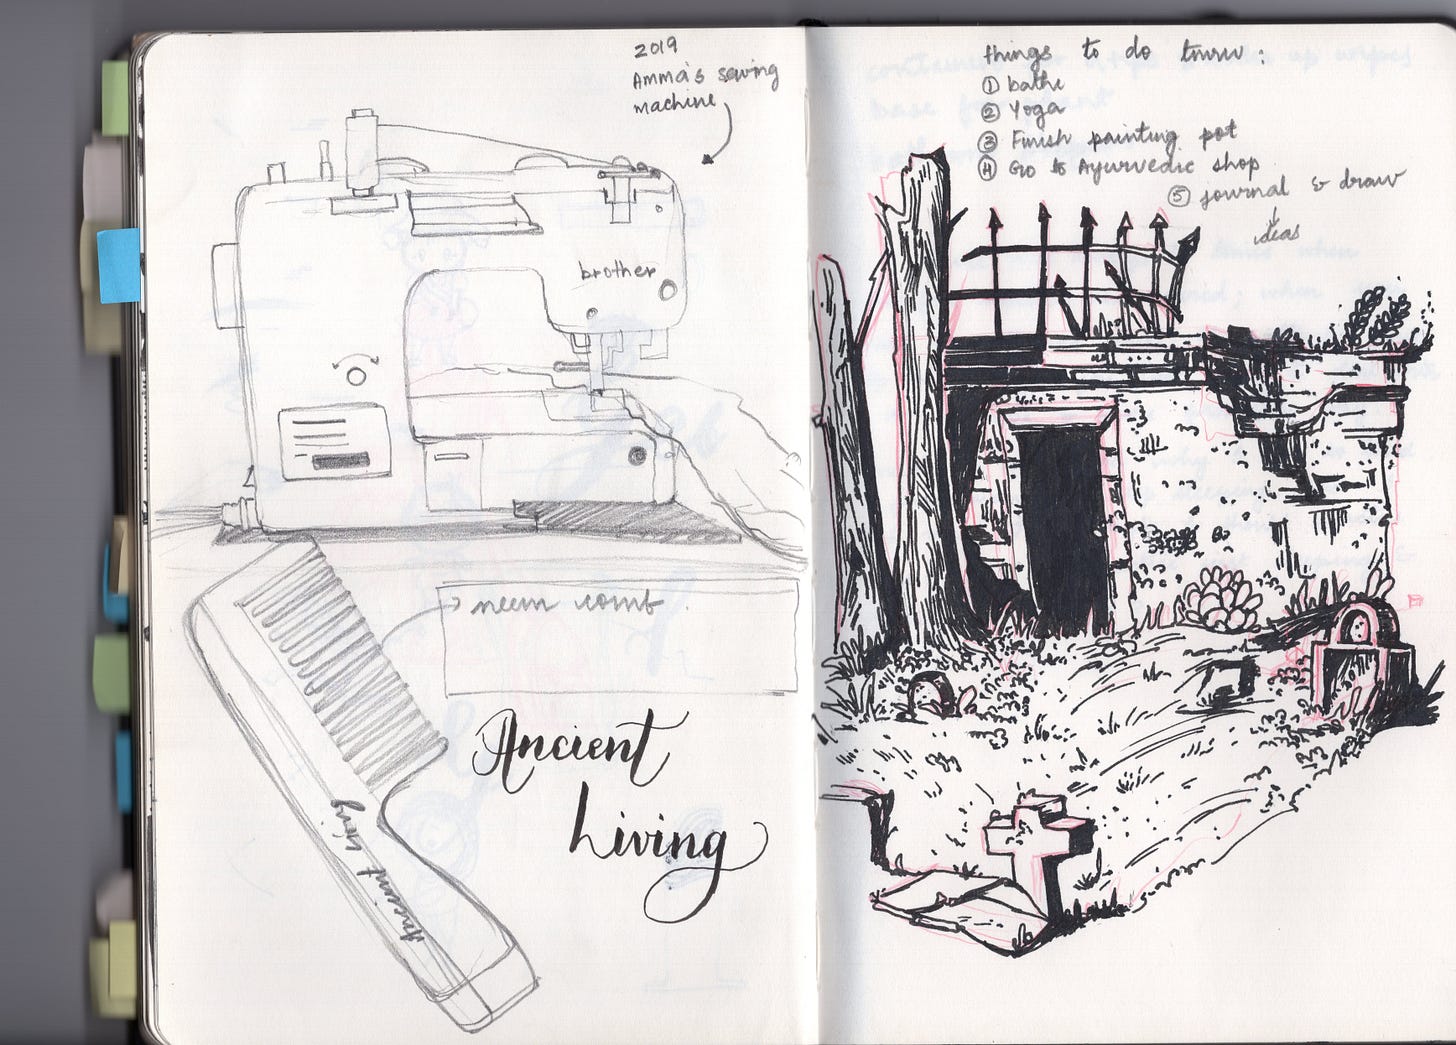 2019
Amma's sewing
machine
brother
neem comb
Ancient
Living
Ancient Living
things to do tmrw:
① bathe
② Yoga
③ Finish painting pot
④ Go to Ayurvedic shop
⑤ journal & draw
ideas